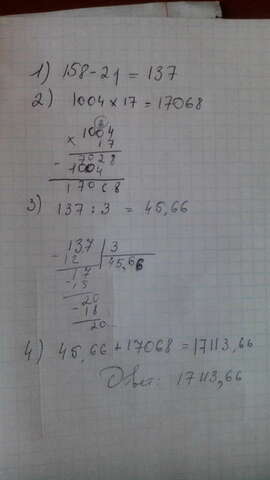 1) 158 - 21 = 137
2) 1004 × 17 = 17068
2
× 1004
17
- 7028
1004
17068
3) 137 : 3 = 45,66
- 137 | 3
12 | 45,66
17
- 15
20
- 18
20
4) 45,66 + 17068 = 17113,66
Ответ: 17113,66